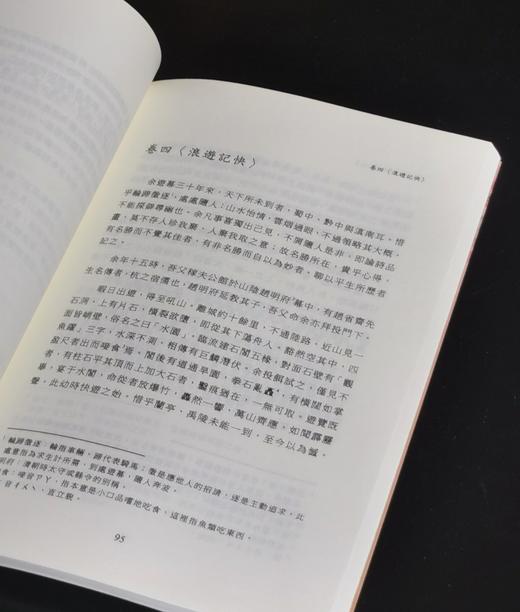 卷四〈浪遊記快〉
卷四〈浪遊記快〉
余遊幕三十年來，天下所未到者，蜀中、黔中與滇南耳。惜
乎輪蹄徵逐¹，處處隨人；山水怡情，雲煙過眼，不過領略其大概，
不能探僻尋幽也。余凡事喜獨出己見，不屑隨人是非，即論詩品
畫，莫不存人珍我棄、人棄我取之意；故名勝所在，貴乎心得，
有名勝而不覺其佳者，有非名勝而自以為妙者。聊以平生所歷者
記之。
余年十五時，吾父稼夫公館於山陰趙明府²幕中，有趙省齋先
生名傳者，杭之宿儒也，趙明府延教其子，吾父命余亦拜投門下。
暇日出遊，得至吼山，離城約十餘里，不通陸路。近山見一
石洞，上有片石，橫裂欲墮，即從其下蕩舟入。豁然空其中，四
面皆峭壁，俗名之曰「水園」，臨流建石閣五椽，對面石壁有「觀
魚躍」三字，水深不測，相傳有巨鱗潛伏。余投餌試之，僅見不
盈尺者出而唼食³焉。閣後有道通旱園，拳石亂矗⁴，有橫闊如掌
者，有柱石平其頂而上加大石者，鑿痕猶在，一無可取。遊覽既
畢，宴于水閣，命從者放爆竹，轟然一響，萬山齊應，如聞霹靂
聲。此幼時快遊之始。惜乎蘭亭、禹陵未能一到，至今以為憾。
輪蹄徵逐：輪指車輛，蹄代表騎馬；徵是應他人的招請，逐是主動追求。此
處意指為求生計所需，到處遊幕，隨人奔波。
明府：清朝時太守或縣令的別稱。
食：唼音ㄕㄚˋ，指本意是小口品嚐地吃食，這裡指魚類吃東西。
音ㄔㄨˋ，直立貌。
95